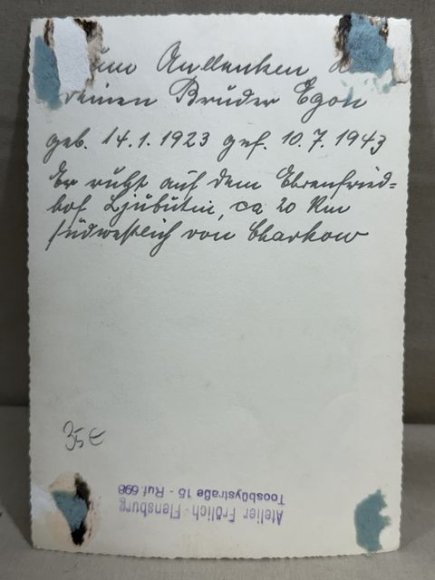 Zum Andenken an
deinen Bruder Egon
geb. 14.1.1923 gef. 10.7.1943
Er ruht auf dem Ehrenfried=
hof Ljubutin, ca 20 km
südwestlich von Charkow
35€
Atelier Frölich · Flensburg
Toosbüystraße 15 - Ruf 698